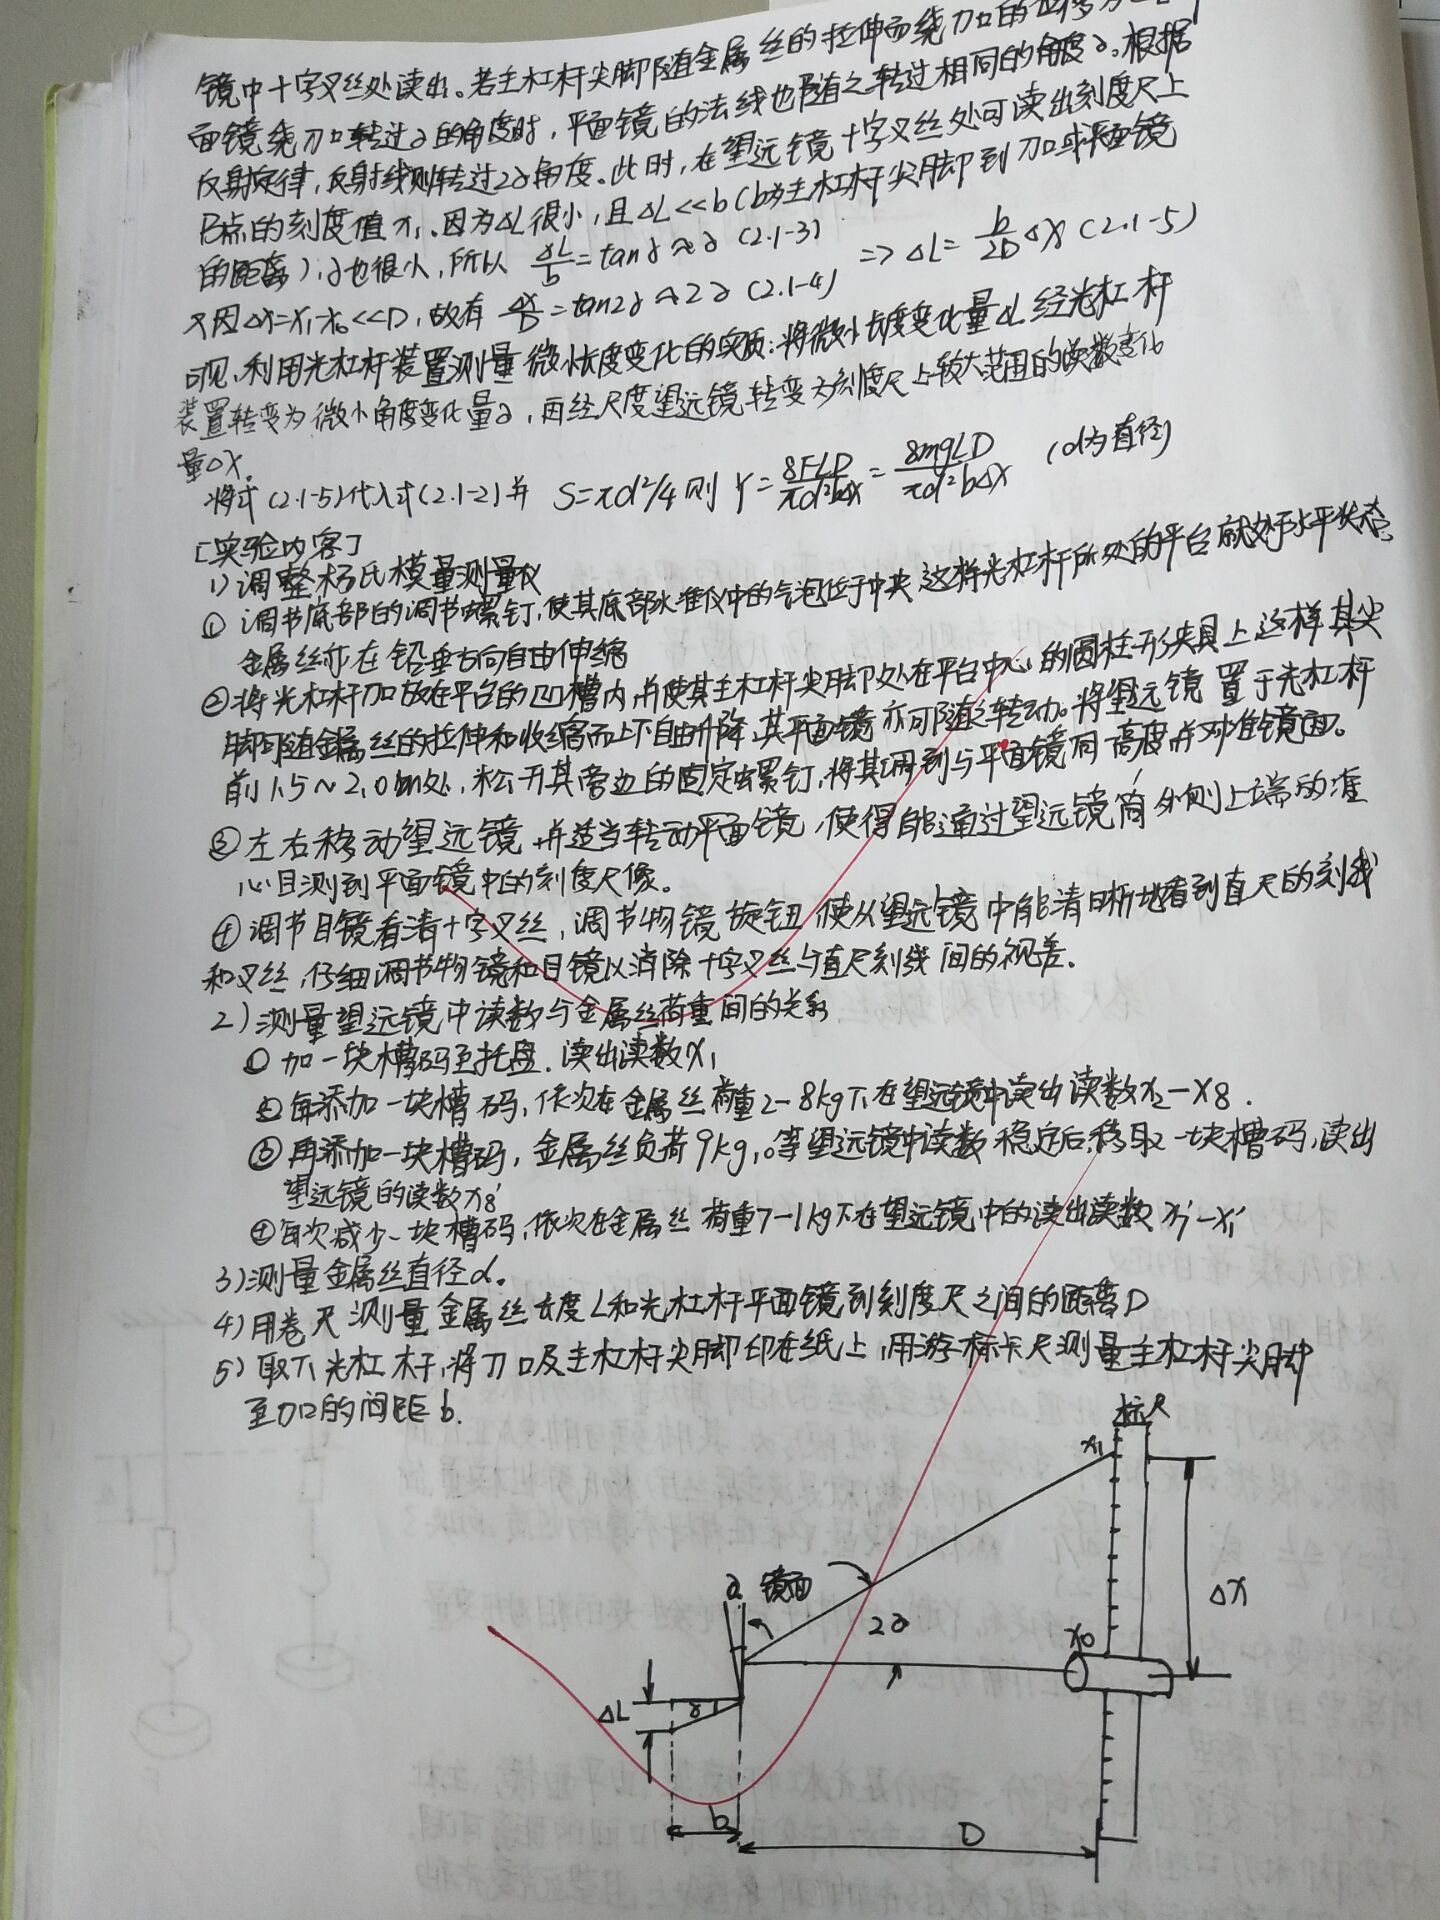 镜中十字叉丝处读出。若主杠杆尖脚随金属丝的拉伸而绕刀口的
面镜绕刀口转过∂的角度时,平面镜的法线也随之转过相同的角度∂。根据
反射定律,反射线则转过2∂角度。此时,在望远镜十字叉丝处可读出刻度尺上
B点的刻度值x₁。因为ΔL很小,且ΔL<<b(b为主杠杆尖脚到刀口或平面镜
的距离),∂也很小,所以 ΔL/b=tan∂≈∂ (2.1-3)
⇒ΔL=b/2D Δx (2.1-5)
又因Δx=x₁-x₀<<D,故有 Δx/D=tan2∂≈2∂ (2.1-4)
可见,利用光杠杆装置测量微小长度变化的实质:将微小长度变化量ΔL经光杠杆
装置转变为微小角度变化量∂,再经尺度望远镜转变为刻度尺上较大范围的读数变化
量ΔX。
将式(2.1-5)代入式(2.1-2)并 S=πd²/4则 Y=8FLD/πd²bΔx=8mgLD/πd²bΔx (d为直径)
[实验内容]
1)调整杨氏模量测量仪
①调节底部的调节螺钉,使其底部水准仪中的气泡位于中央,这样光杠杆所处的平台就处于水平状态。
金属丝亦在铅垂方向自由伸缩
②将光杠杆刀口放在平台的凹槽内,并使其主杠杆尖脚处在平台中心的圆柱形夹具上,这样其尖
脚可随金属丝的拉伸和收缩而上下自由升降,其平面镜亦可随之转动。将望远镜置于光杠杆
前1.5~2.0m处,松开其旁边的固定螺钉,将其调到与平面镜同高度,并对准镜面。
③左右移动望远镜,并适当转动平面镜,使得能通过望远镜筒外侧上端的准
心目测到平面镜中的刻度尺像。
④调节目镜看清十字叉丝,调节物镜旋钮,使从望远镜中能清晰地看到直尺的刻线
和叉丝,仔细调节物镜和目镜以消除十字叉丝与直尺刻线间的视差。
2)测量望远镜中读数与金属丝荷重间的关系
①加一块槽码至托盘.读出读数x₁
②每添加一块槽码,依次在金属丝荷重2-8kg下在望远镜中读出读数x₂-x₈.
③再添加一块槽码,金属丝负荷9kg,。等望远镜中读数稳定后,移取一块槽码,读出
望远镜的读数x₈'
④每次减少一块槽码,依次在金属丝荷重7-1kg下在望远镜中的读出读数x₇'-x₁'
3)测量金属丝直径d。
4)用卷尺测量金属丝长度L和光杠杆平面镜到刻度尺之间的距离D
5)取下光杠杆,将刀口及主杠杆尖脚印在纸上,用游标卡尺测量主杠杆尖脚
至刀口的间距b.
标尺
x₁
∂
镜面
Δx
2∂
x₀
ΔL
∂
b
D